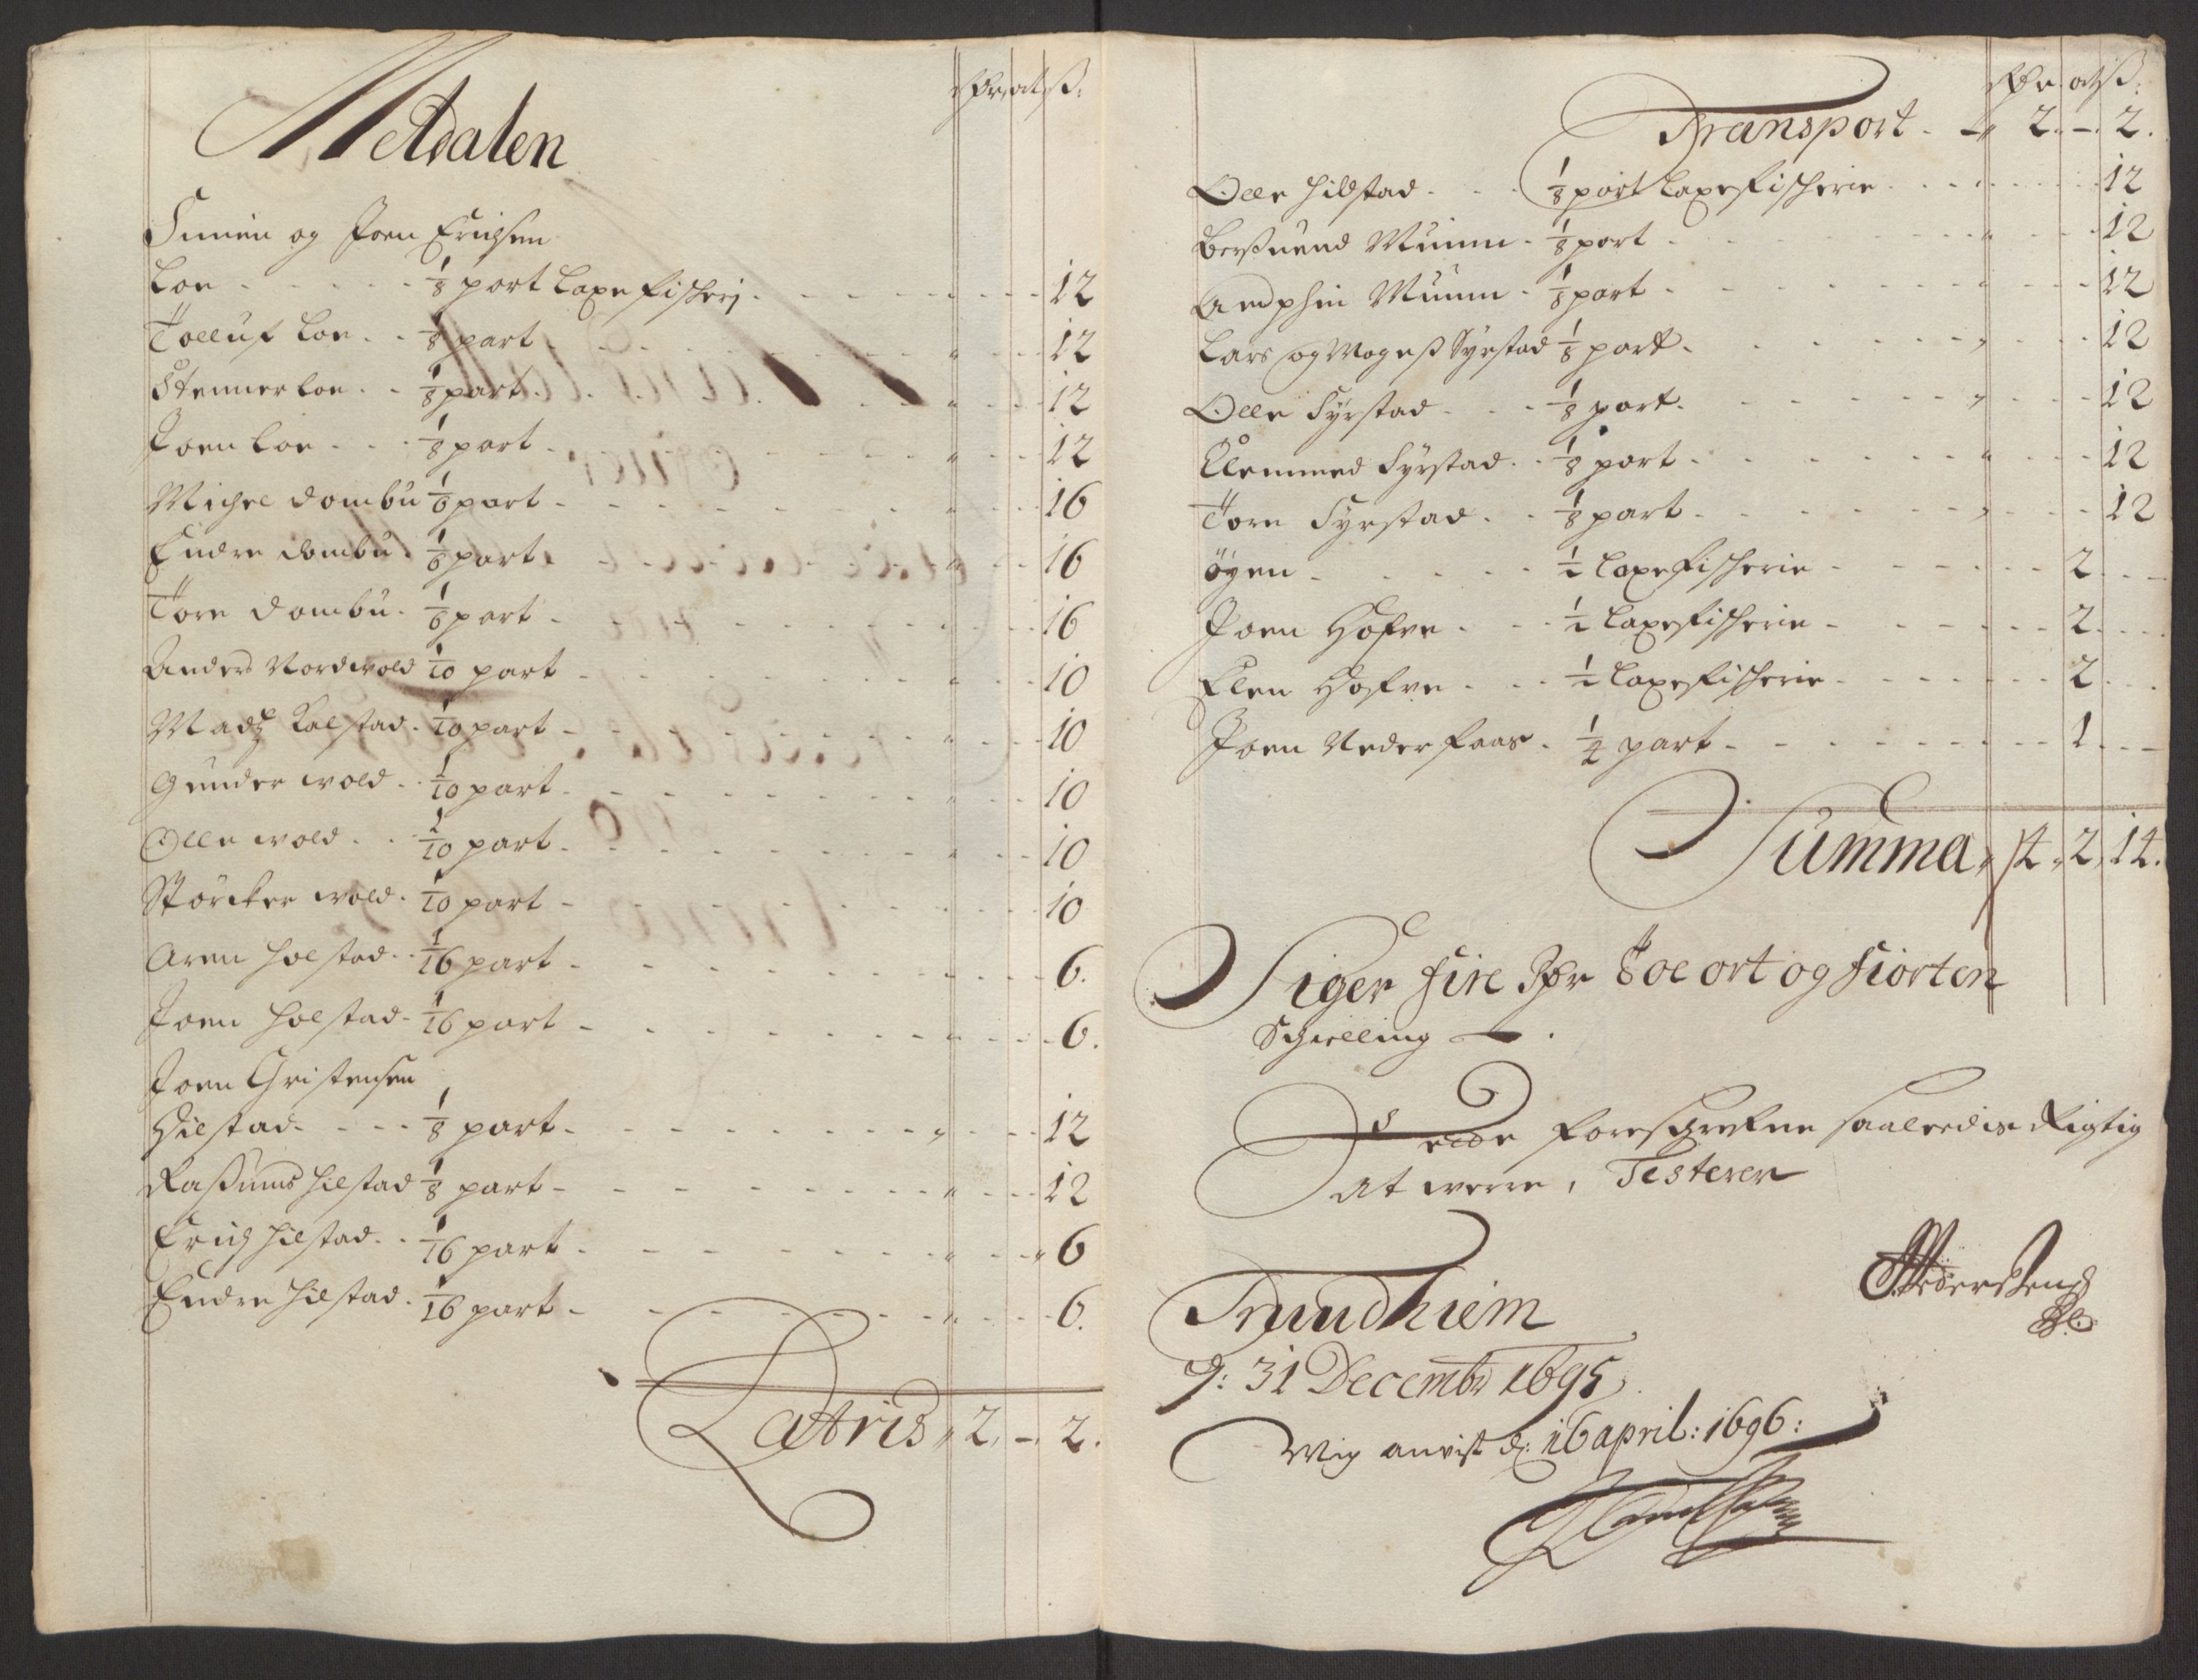 Meldalen
Spr ort ß:
Simen og Joen Erichsen
Loe - - - 1/8 port Laxefischerj - - - 12
Tolluf Loe - - 1/8 part - - - 12
Stenner Loe - - 1/8 part - - - 12
Joen Loe - - - 1/8 port - - - 12
Michel Dombu 1/6 part - - - 16
Endre Dombu 1/6 part - - - 16
Tore Dombu - 1/6 part - - - 16
Anders Nordwold 1/10 part - - - 10
Madz Kalstad - 1/10 part - - - 10
Gunder wold - - 1/10 part - - - 10
Olle wold - - 1/10 part - - - 10
Störcker wold - 1/10 part - - - 10
Aren Holstad - - 1/16 part - - - 6.
Joen Holstad - 1/16 part - - - 6.
Joen Christensen
Hilstad - - - 1/8 part - - - 12
Raßmus Hilstad 1/8 part - - - 12
Erich Hilstad - - 1/16 part - - - 6
Endre Hilstad - 1/16 part - - - 6.
Latris 2, - 2.
Spr ort ß:
Transport - 2. - 2.
Olle Hilstad - - 1/8 port Laxefischerie - - - 12
Berßuend Muunn - 1/8 port - - - 12
Amphin Muunn - 1/8 port - - - 12
Lars og Mogenß Syrstad 1/8 part - - - 12
Olle Syrstad - - - 1/8 port - - - 12
Clemmed Syrstad - - 1/8 port - - - 12
Tore Syrstad - - 1/8 part - - - 12
öyen - - - 1/2 Laxefischerie - - - 2 - -
Joen Hofve - - - 1/2 Laxefischerie - - - 2 - -
Elen Hofve - - - 1/2 Laxefischerie - - - 2 - -
Joen Neder faas - 1/4 part - - - 1 - -
Summa 4, 2, 14.
Siger fire Spr Toe ort og fiorten
Schielling
Dette foreschrefne saaledis Rigtig
at werre, Testerer
Trundhiem
d: 31 Decembr 1695
Mig anvist d: 16 april: 1696: